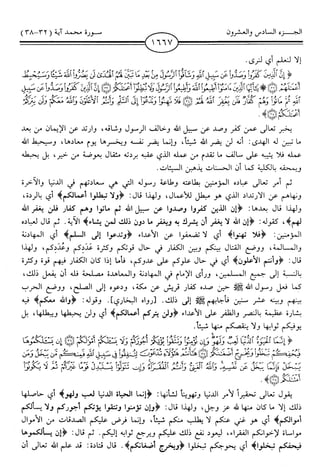 الجزء السادس والعشرون
١٦٦٧
سورة محمد آية (٣٢-٣٨)
إلا لنعلم أي لنرى.
﴿إِنَّ الَّذِينَ كَفَرُوا وَصَدُّوا عَن سَبِيلِ اللَّهِ وَشَاقُّوا الرَّسُولَ مِن بَعْدِ مَا تَبَيَّنَ لَهُمُ الْهُدَى لَن يَضُرُّوا اللَّهَ شَيْئًا وَسَيُحْبِطُ
أَعْمَالَهُمْ ﴿٣٢﴾ يَا أَيُّهَا الَّذِينَ آمَنُوا أَطِيعُوا اللَّهَ وَأَطِيعُوا الرَّسُولَ وَلَا تُبْطِلُوا أَعْمَالَكُمْ ﴿٣٣﴾ إِنَّ الَّذِينَ كَفَرُوا وَصَدُّوا عَن سَبِيلِ
اللَّهِ ثُمَّ مَاتُوا وَهُمْ كُفَّارٌ فَلَن يَغْفِرَ اللَّهُ لَهُمْ ﴿٣٤﴾ فَلَا تَهِنُوا وَتَدْعُوا إِلَى السَّلْمِ وَأَنتُمُ الْأَعْلَوْنَ وَاللَّهُ مَعَكُمْ وَلَن يَتِرَكُمْ
أَعْمَالَكُمْ ﴿٣٥﴾﴾.
يخبر تعالى عمن كفر وصد عن سبيل الله وخالف الرسول وشاقه، وارتد عن الإيمان من بعد
ما تبين له الهدى: أنه لن يضر الله شيئاً، وإنما يضر نفسه ويخسرها يوم معادها، وسيحبط الله
عمله فلا يثيبه على سالف ما تقدم من عمله الذي عقبه بردته مثقال بعوضة من خير، بل يحبطه
ويمحقه بالكلية كما أن الحسنات يذهبن السيئات.
ثم أمر تعالى عباده المؤمنين بطاعته وطاعة رسوله التي هي سعادتهم في الدنيا والآخرة
ونهاهم عن الارتداد الذي هو مبطل للأعمال، ولهذا قال: ﴿ولا تبطلوا أعمالكم﴾ أي بالردة،
ولهذا قال بعدها: ﴿إن الذين كفروا وصدوا عن سبيل الله ثم ماتوا وهم كفار فلن يغفر الله
لهم﴾، كقوله: ﴿إن الله لا يغفر أن يشرك به ويغفر ما دون ذلك لمن يشاء﴾ الآية. ثم قال لعباده
المؤمنين: ﴿فلا تهنوا﴾ أي لا تضعفوا عن الأعداء، ﴿وتدعوا إلى السلم﴾ أي المهادنة
والمسالمة، ووضع القتال بينكم وبين الكفار في حال قوتكم وكثرة عَدَدِكم وعُدَدِكم، ولهذا
قال: ﴿وأنتم الأعلون﴾ أي في حال علوكم على عدوكم، فأما إذا كان الكفار فيهم قوة وكثرة
بالنسبة إلى جميع المسلمين، ورأى الإمام في المهادنة والمعاهدة مصلحة فله أن يفعل ذلك،
كما فعل رسول الله ﷺ حين صده كفار قريش عن مكة، ودعوه إلى الصلح، ووضع الحرب
بينهم وبينه عشر سنين فأجابهم ﷺ إلى ذلك. [رواه البخاري]. وقوله: ﴿والله معكم﴾ فيه
بشارة عظيمة بالنصر والظفر على الأعداء ﴿ولن يتركم أعمالكم﴾ أي ولن يحبطها ويبطلها، بل
يوفيكم ثوابها ولا ينقصكم منها شيئاً.
﴿إِنَّمَا الْحَيَاةُ الدُّنْيَا لَعِبٌ وَلَهْوٌ وَإِن تُؤْمِنُوا وَتَتَّقُوا يُؤْتِكُمْ أُجُورَكُمْ وَلَا يَسْأَلْكُمْ أَمْوَالَكُمْ ﴿٣٦﴾ إِن يَسْأَلْكُمُوهَا
فَيُحْفِكُمْ تَبْخَلُوا وَيُخْرِجْ أَضْغَانَكُمْ ﴿٣٧﴾ هَا أَنتُمْ هَؤُلَاءِ تُدْعَوْنَ لِتُنفِقُوا فِي سَبِيلِ اللَّهِ فَمِنكُم مَّن يَبْخَلُ وَمَن
يَبْخَلْ فَإِنَّمَا يَبْخَلُ عَن نَّفْسِهِ وَاللَّهُ الْغَنِيُّ وَأَنتُمُ الْفُقَرَاءُ وَإِن تَتَوَلَّوْا يَسْتَبْدِلْ قَوْمًا غَيْرَكُمْ ثُمَّ لَا يَكُونُوا
أَمْثَالَكُم ﴿٣٨﴾﴾.
يقول تعالى تحقيراً لأمر الدنيا وتهويناً لشأنها: ﴿إنما الحياة الدنيا لعب ولهو﴾ أي حاصلها
ذلك إلا ما كان منها لله عز وجل، ولهذا قال: ﴿وإن تؤمنوا وتتقوا يؤتكم أجوركم ولا يسألكم
أموالكم﴾ أي هو غني عنكم لا يطلب منكم شيئاً، وإنما فرض عليكم الصدقات من الأموال
مواساة لإخوانكم الفقراء، ليعود نفع ذلك عليكم ويرجع ثوابه إليكم. ثم قال: ﴿إن يسألكموها
فيحفكم تبخلوا﴾ أي يحوجكم تبخلوا ﴿ويخرج أضغانكم﴾. قال قتادة: قد علم الله تعالى أن